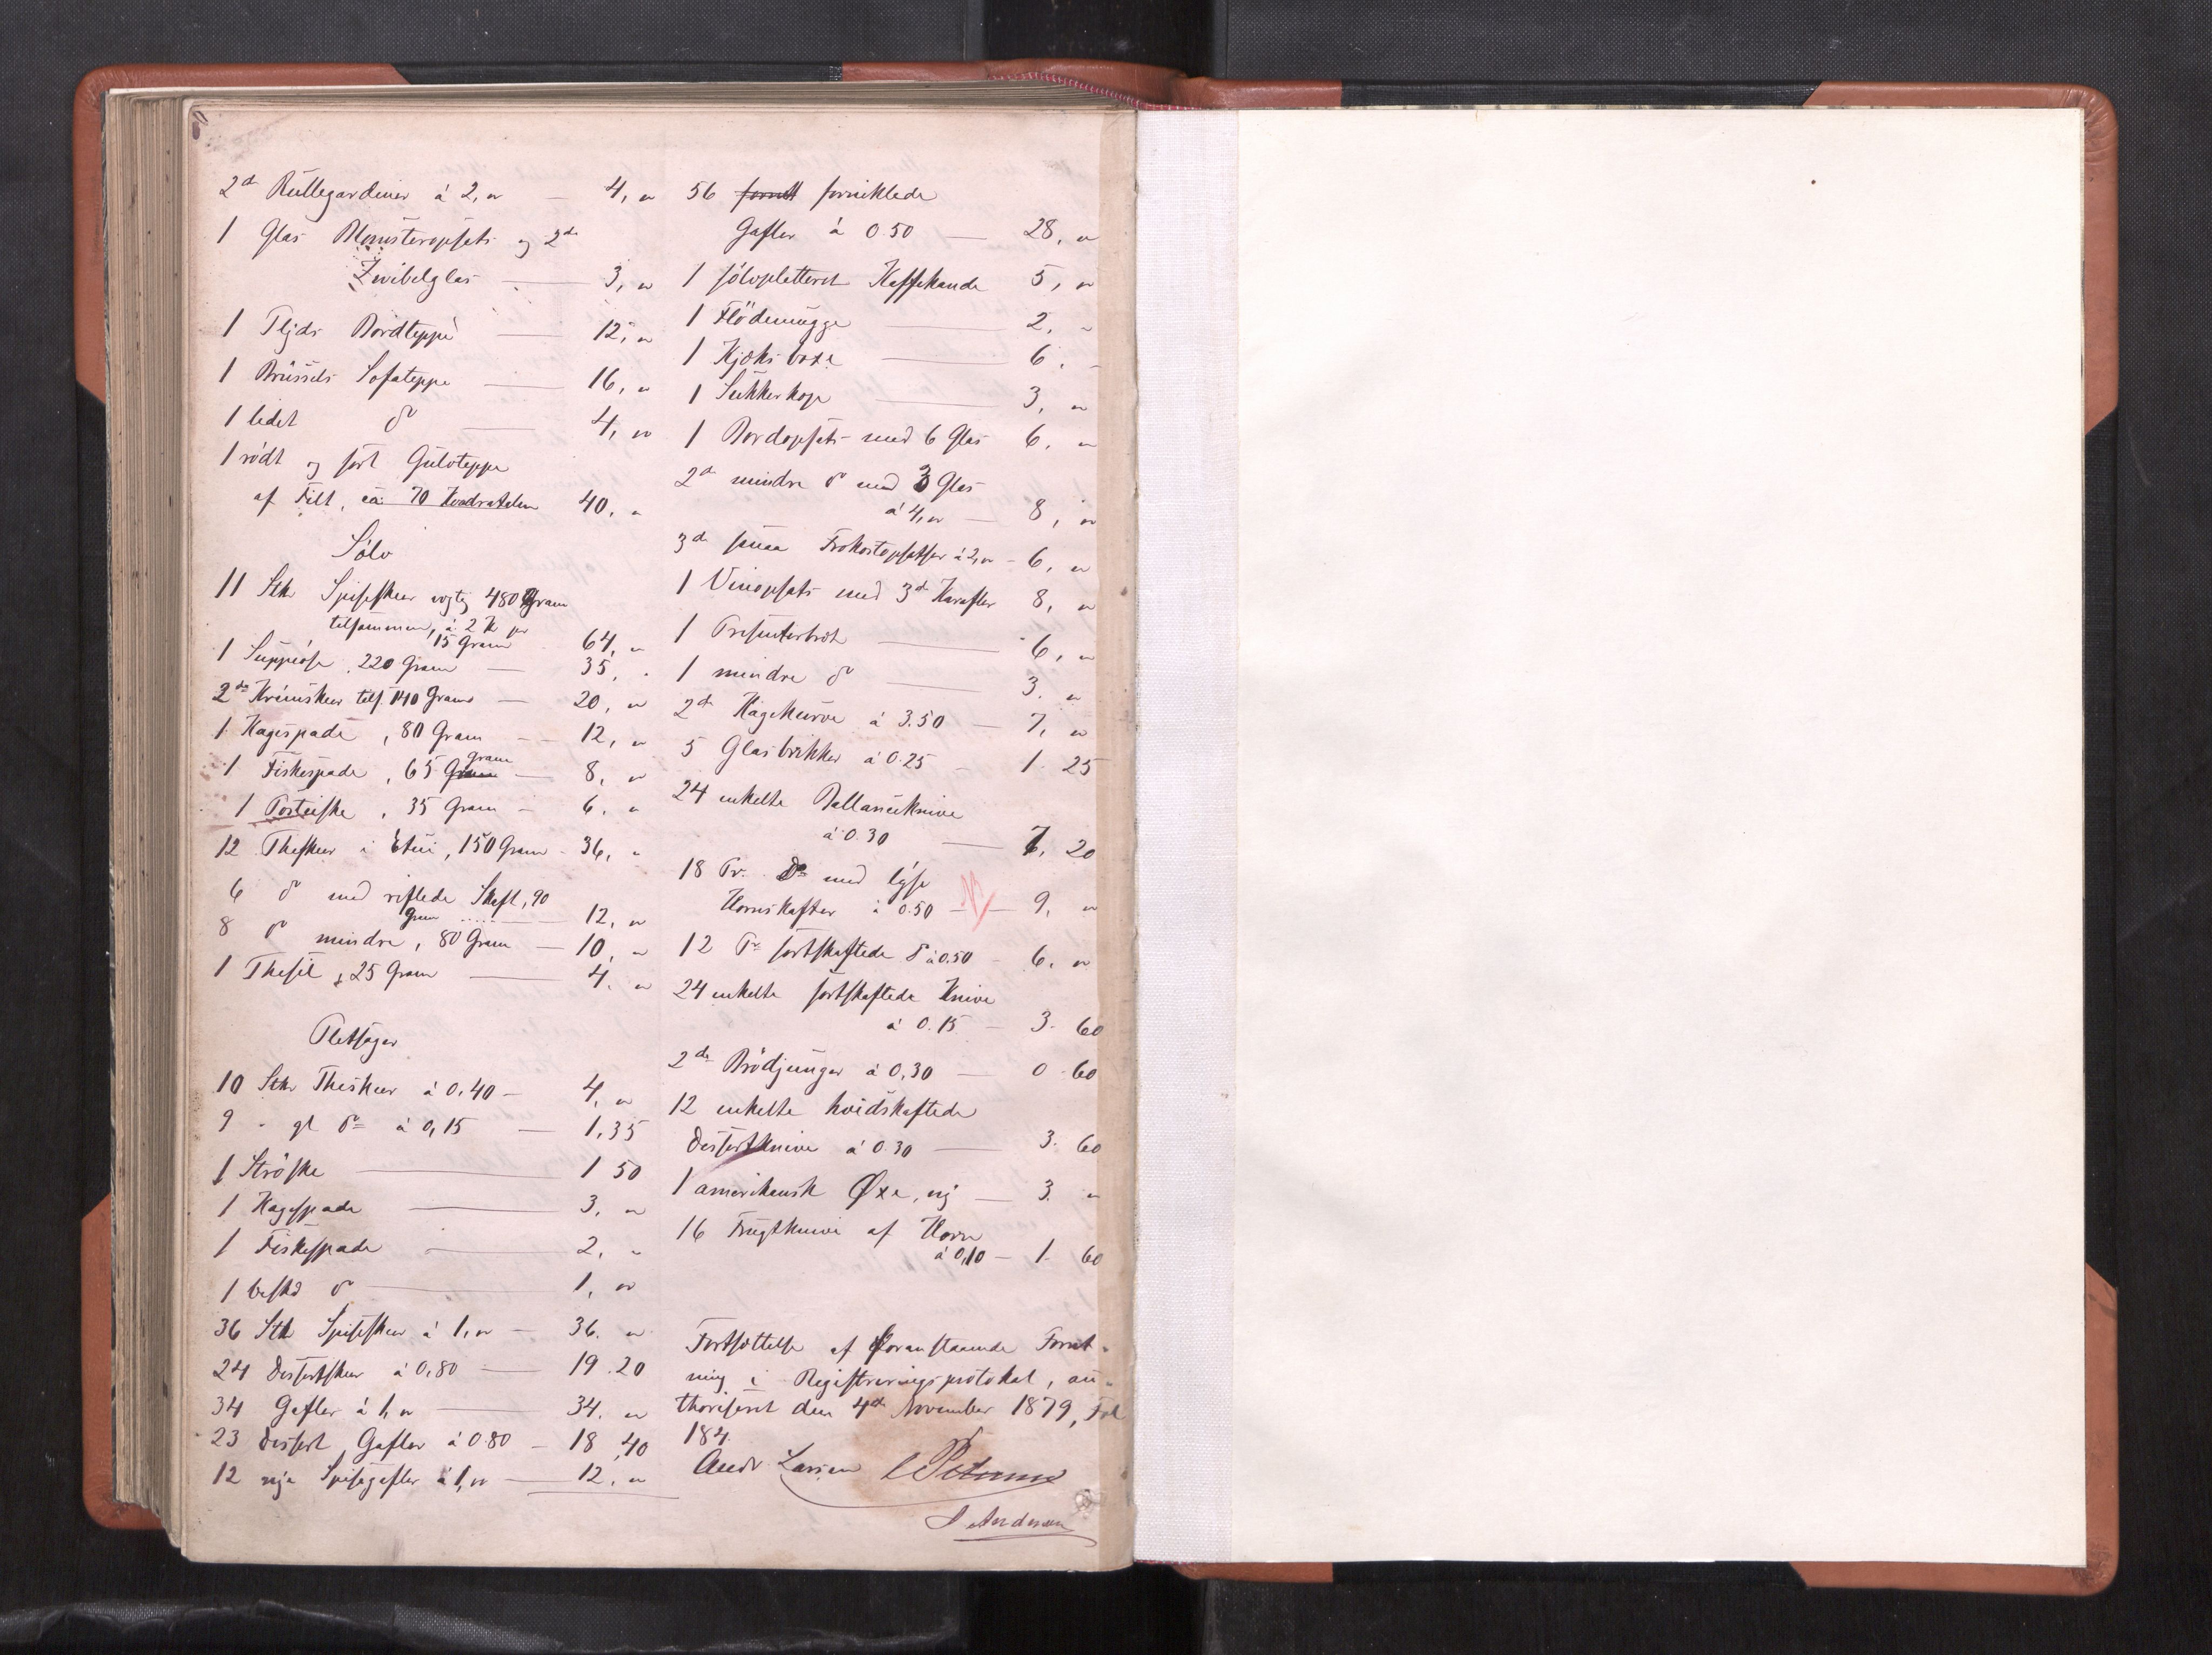 2de Rullegardiner á 2, „ — 4, „
1 Glas Blomsteropsats og 2de
Zwibelglas — 3, „
1 Pljds Bordteppe — 12, „
1 Brüssels Sofateppe — 16, „
1 ledet do — 4, „
1 rödt og sort Gulvteppe
af Filt, ca: 70 Kvadratalen 40, „
Sölv
11 Stk Spiseskeer vegtig 480 Gram
tilsammen, á 2 K pr
15 Gram 64, „
1 Suppeöse, 220 Gram — 35, „
2de Krämskeer tils. 140 Gram — 20, „
1 Kagespade, 80 Gram — 12, „
1 Fiskespade, 65 Gram — 8, „
1 Posteiske, 35 Gram — 6, „
12 Theskeer i Etui, 150 Gram - 36, „
6 do med riflede Skaft, 90
Gram — 12, „
8 do mindre, 80 Gram — 10, „
1 Thesil, 25 Gram — 4, „
Pletsager
10 Stkr Theskeer á 0,40 — 4, „
9 - gl do á 0,15 — 1,35
1 Ströske — 1 50
1 Kagespade — 3, „
1 Fiskespade — 2, „
1 beskd do — 1, „
36 Stk Spiseskeer á 1, „ — 36. „
24 Dessertskeer á 0,80 — 19.20
34 Gafler á 1, „ — 34. „
23 Dessert Gafler á 0.80 — 18,40
12 nye Spisegafler á 1, „ — 12, „
56 forniklede
Gafler á 0.50 — 28, „
1 sölvpletteret Kaffekande 5, „
1 Flödemugge — 2. „
1 Kjæks boxe — 6. „
1 Sukkerkop — 3, „
1 Bordopsats med 6 Glas 6, „
2de mindre do med 3 Glas
á 4, „ — 8, „
3de smaa Frokostopsatser á 2, „ - 6, „
1 Vinopsats med 3de Karafler 8, „
1 Presenterbræt — 6, „
1 mindre do — 3. „
2de Kagekurve á 3.50 — 7, „
5 Glasbrikker á 0.25 — 1. 25
24 enkelte Ballanceknive
á 0.30 — 7. 20
18 Pr. Do med lyse
Hornskafter á 0.50 — 9, „
12 Pr sortskaftede do á 0.50 - 6. „
24 enkelte sortskaftede Knive
á 0.15 — 3. 60
2de Brödjunger á 0,30 — 0.60
12 enkelte hvidskaftede
Dessertknive á 0.30 — 3. 60
1 amerikansk Øxe, ny — 3. „
16 Frugtknive af Horn
á 0,10 — 1. 60
Fortsættelse af foranstaaende Forret-
ning i Registreringsprotokol, au-
thoriseret den 4de November 1879, Fol
184.
Andr Larsen Petersen
Andersen